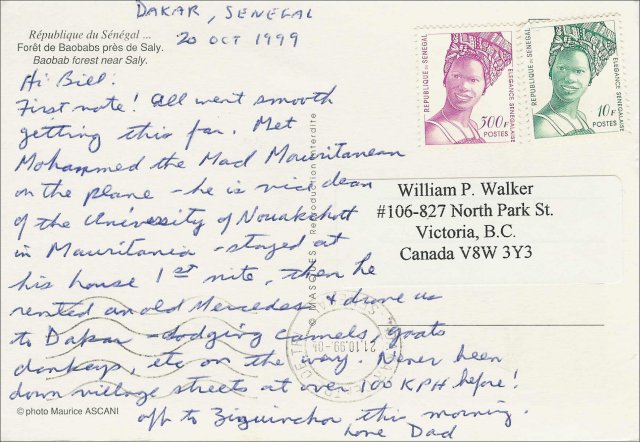 DAKAR, SENEGAL
20 OCT 1999
République du Sénégal ...
Forêt de Baobabs près de Saly.
Baobab forest near Saly.
Hi Bill:
First note! All went smooth
getting this far. Met
Mohammed the Mad Mauritanean
on the plane - he is vice dean
of the University of Nouakchott
in Mauritania - stayed at
his house 1st nite, then he
rented an old Mercedes & drove us
to Dakar - dodging camels, goats
donkeys, etc on the way. Never been
down village streets at over 100 KPH before!
off to Ziguinchor this morning.
Love Dad
© photo Maurice ASCANI
© MASQUES Reproduction interdite
REPUBLIQUE DU SENEGAL
ELEGANCE SENEGALAISE
300F
POSTES
REPUBLIQUE DU SENEGAL
ELEGANCE SENEGALAISE
10F
POSTES
William P. Walker
#106-827 North Park St.
Victoria, B.C.
Canada V8W 3Y3
21.10.99